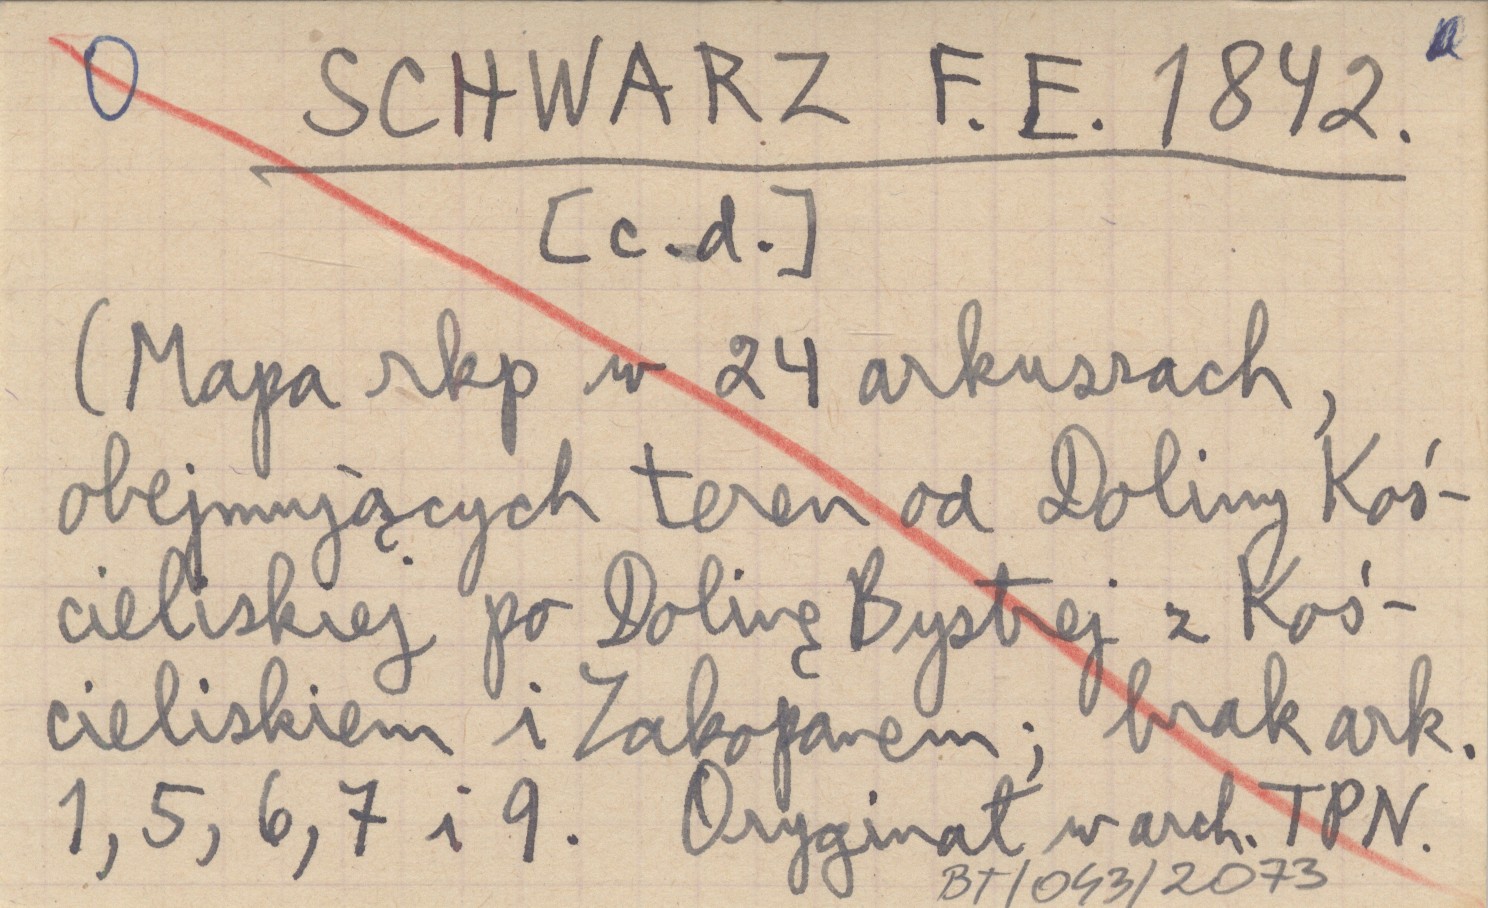 O SCHWARZ F. E. 1842.
[c.d.]
(Mapa rkp w 24 arkuszach,
obejmujących teren od Doliny Koś-
cieliskiej po Dolinę Bystrej z Koś-
cieliskiem i Zakopanem; brak ark.
1, 5, 6, 7 i 9. Oryginał w arch. TPN.
BT/043/2073